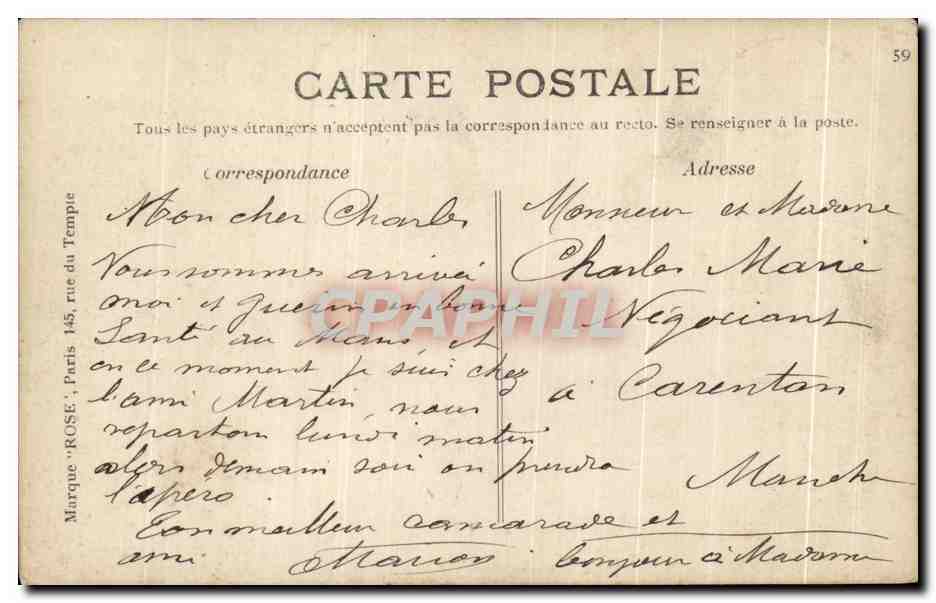 59
CARTE POSTALE
Tous les pays étrangers n'acceptent pas la correspondance au recto. Se renseigner à la poste.
Correspondance
Adresse
Marque "ROSE", Paris 145, rue du Temple
Mon cher Charles
Vous sommes arrivéi
moi et Guerin en bonne
Santé au Mans, et
en ce moment je suis chez
l'ami Martin, nous
repartons lundi matin
alors demain soir on prendra
l'apéro.
Ton meilleur camarade et
ami Marion
bonjour à Madame
Monsieur et Madame
Charles Marie
Négociant
à Carentan
Manche
CPAPHIL